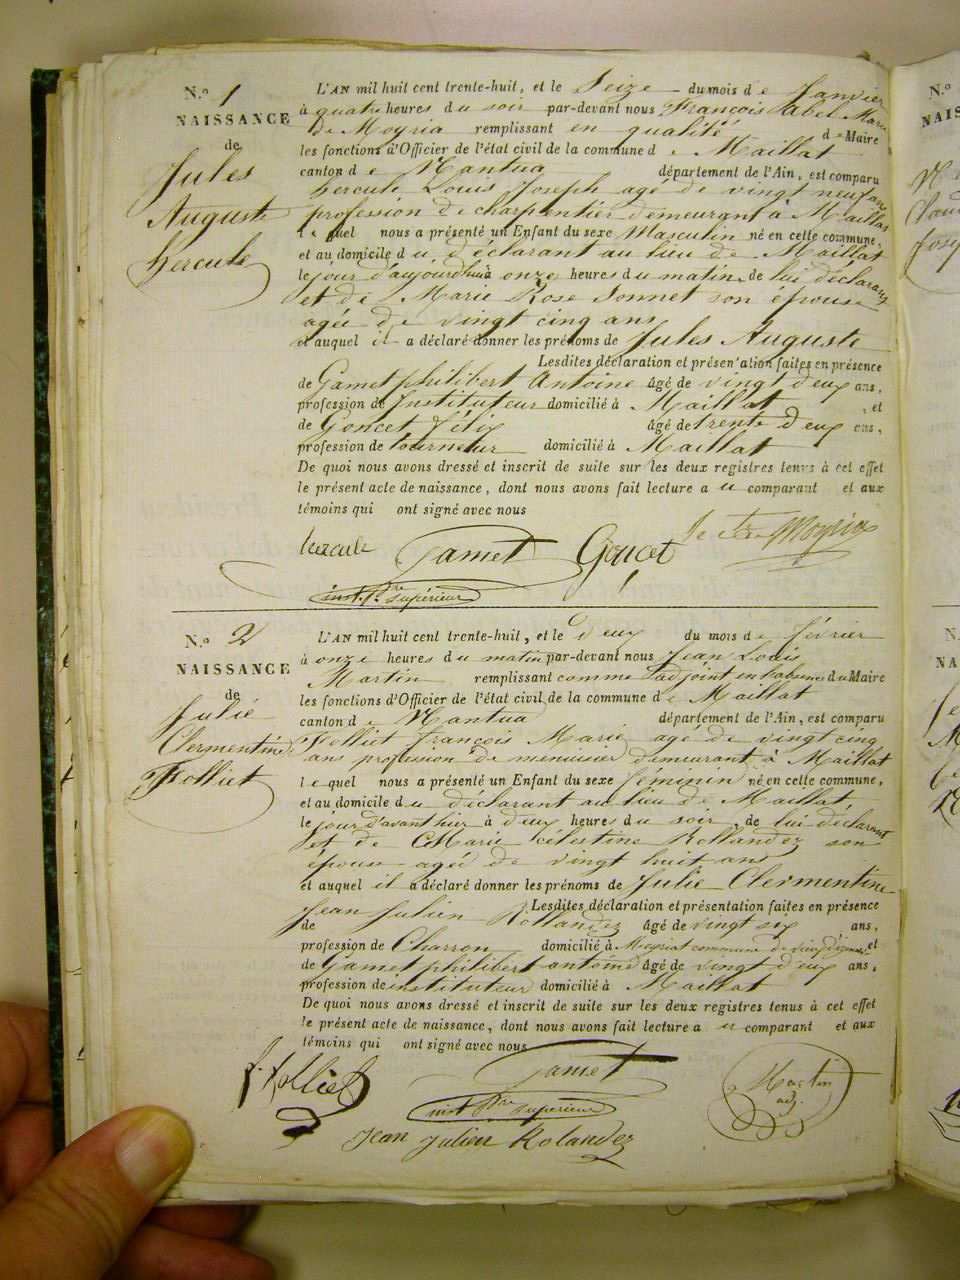 N.º 1
NAISSANCE
de
Jules
Auguste
hercule
L'AN mil huit cent trente-huit, et le Seize du mois de Janvier
à quatre heures du soir par-devant nous François Abel Marie
De Moyria remplissant en qualité de Maire
les fonctions d'Officier de l'état civil de la commune de Maillat
canton de Nantua département de l'Ain, est comparu
hercule Louis Joseph agé de vingt neuf ans
profession de charpentier demeurant à Maillat
lequel nous a présenté un Enfant du sexe Masculin né en cette commune,
et au domicile du déclarant au lieu de Maillat
le jour d'aujourd'hui à onze heures du matin de lui déclarant
et de Marie Rose Sonnet son épouse
agée de vingt cinq ans
et auquel il a déclaré donner les prénoms de Jules Auguste
Lesdites déclaration et présentation faites en présence
de Gamet philibert Antoine âgé de vingt deux ans,
profession de Instituteur domicilié à Maillat , et
de Goncet félix âgé de trente deux ans,
profession de tourneur domicilié à Maillat
De quoi nous avons dressé et inscrit de suite sur les deux registres tenus à cet effet
le présent acte de naissance, dont nous avons fait lecture au comparant et aux
témoins qui ont signé avec nous
hercule Gamet Goncet De Moyria
inst. p.re supérieur
N.º 2
NAISSANCE
de
Julie
Clermentine
Folliet
L'AN mil huit cent trente-huit, et le deux du mois de février
à onze heures du matin par-devant nous Jean Louis
Martin remplissant comme adjoint en l'absence du Maire
les fonctions d'Officier de l'état civil de la commune de Maillat
canton de Nantua département de l'Ain, est comparu
Folliet françois Marie agé de vingt cinq
ans profession de menuisier demeurant à Maillat
lequel nous a présenté un Enfant du sexe feminin né en cette commune,
et au domicile du déclarant au lieu de Maillat,
le jour d'avant hier à deux heures du soir, de lui déclarant
et de Marie célestine Rollandez son
épouse agée de vingt huit ans
et auquel il a déclaré donner les prénoms de Julie Clermentine
Lesdites déclaration et présentation faites en présence
de Jean Julien Rollandez âgé de vingt six ans,
profession de Charron domicilié à commune de et
de Gamet philibert antoine âgé de vingt deux ans,
profession de instituteur domicilié à Maillat
De quoi nous avons dressé et inscrit de suite sur les deux registres tenus à cet effet
le présent acte de naissance, dont nous avons fait lecture au comparant et aux
témoins qui ont signé avec nous
f. folliet Gamet Martin
adj.
inst. p.re supérieur
Jean Julien Rolandez
N.º
NAIS